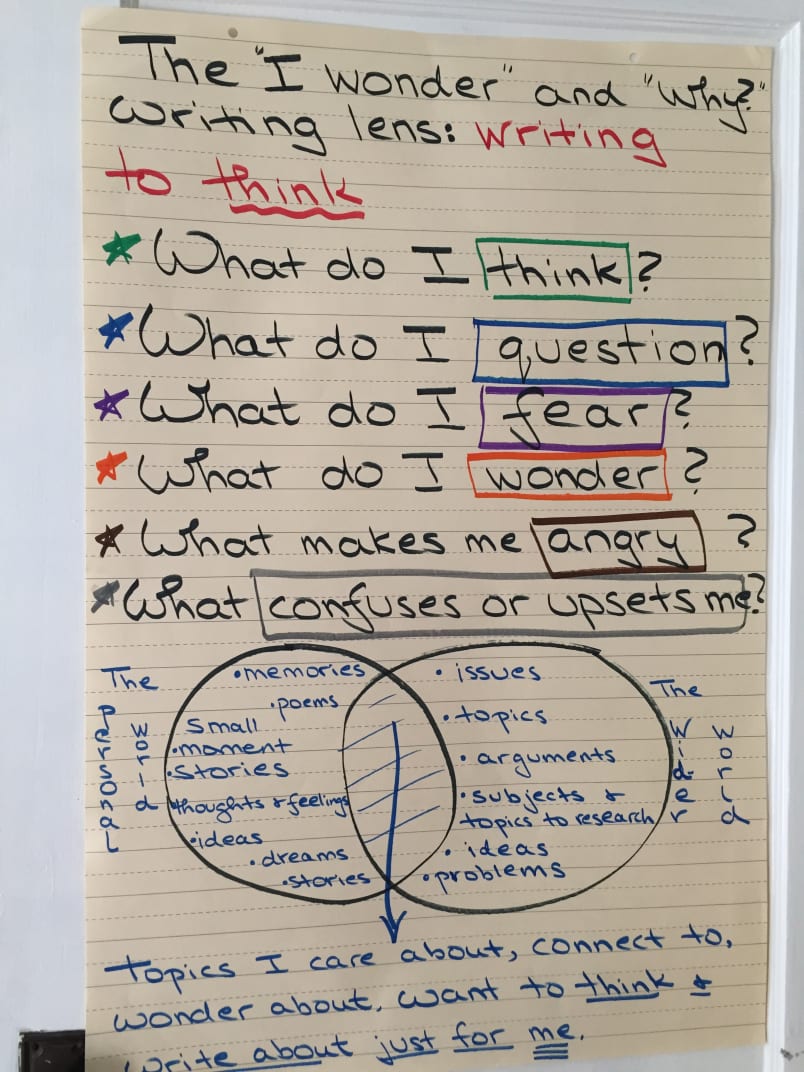 The "I wonder" and "Why?"
writing lens: writing
to think
What do I think?
What do I question?
What do I fear?
What do I wonder?
What makes me angry?
What confuses or upsets me?
The
Personal
world
• memories
• poems
small
• moment
• stories
thoughts & feelings
• ideas
• dreams
• stories
• issues
• topics
• arguments
• subjects &
topics to research
• ideas
• problems
The
Wider
world
Topics I care about, connect to,
wonder about, want to think &
write about just for me.